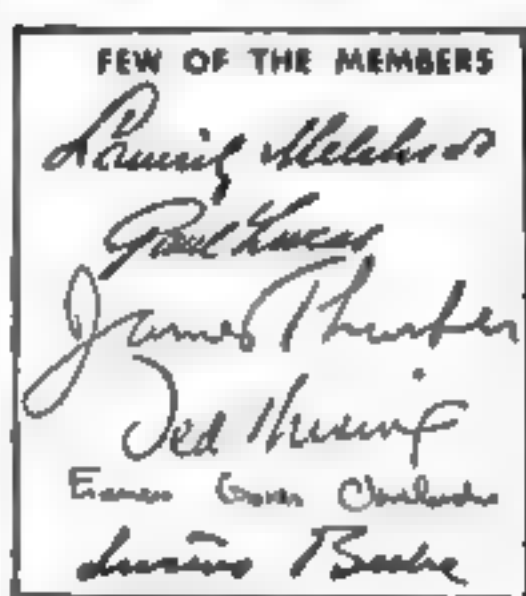 FEW OF THE MEMBERS
Lauritz Melchior
Paul Lukas
James Thurber
Ted Husing
Lucius Beebe